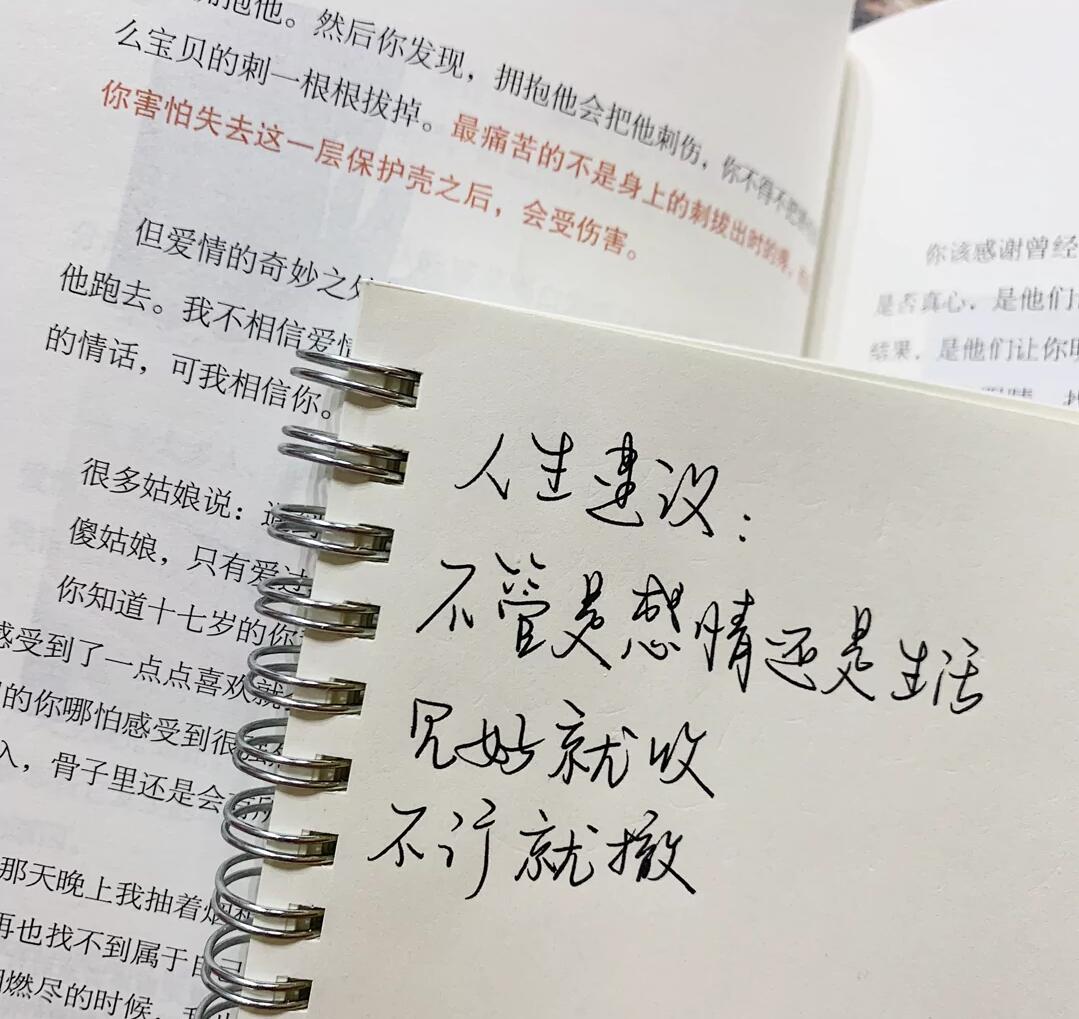 拥抱他。然后你发现，拥抱他会把他刺伤，你不得不把
么宝贝的刺一根根拔掉。最痛苦的不是身上的刺拔出时的
你害怕失去这一层保护壳之后，会受伤害。
但爱情的奇妙之处
他跑去。我不相信爱情
的情话，可我相信你。
很多姑娘说：
傻姑娘，只有爱过
你知道十七岁的你
感受到了一点点喜欢就
的你哪怕感受到很
入，骨子里还是会
那天晚上我抽着烟
再也找不到属于自己
燃尽的时候，
你该感谢曾经
是否真心，是他们
结果，是他们让你
人生建议：
不管是感情还是生活
见好就收
不行就撤